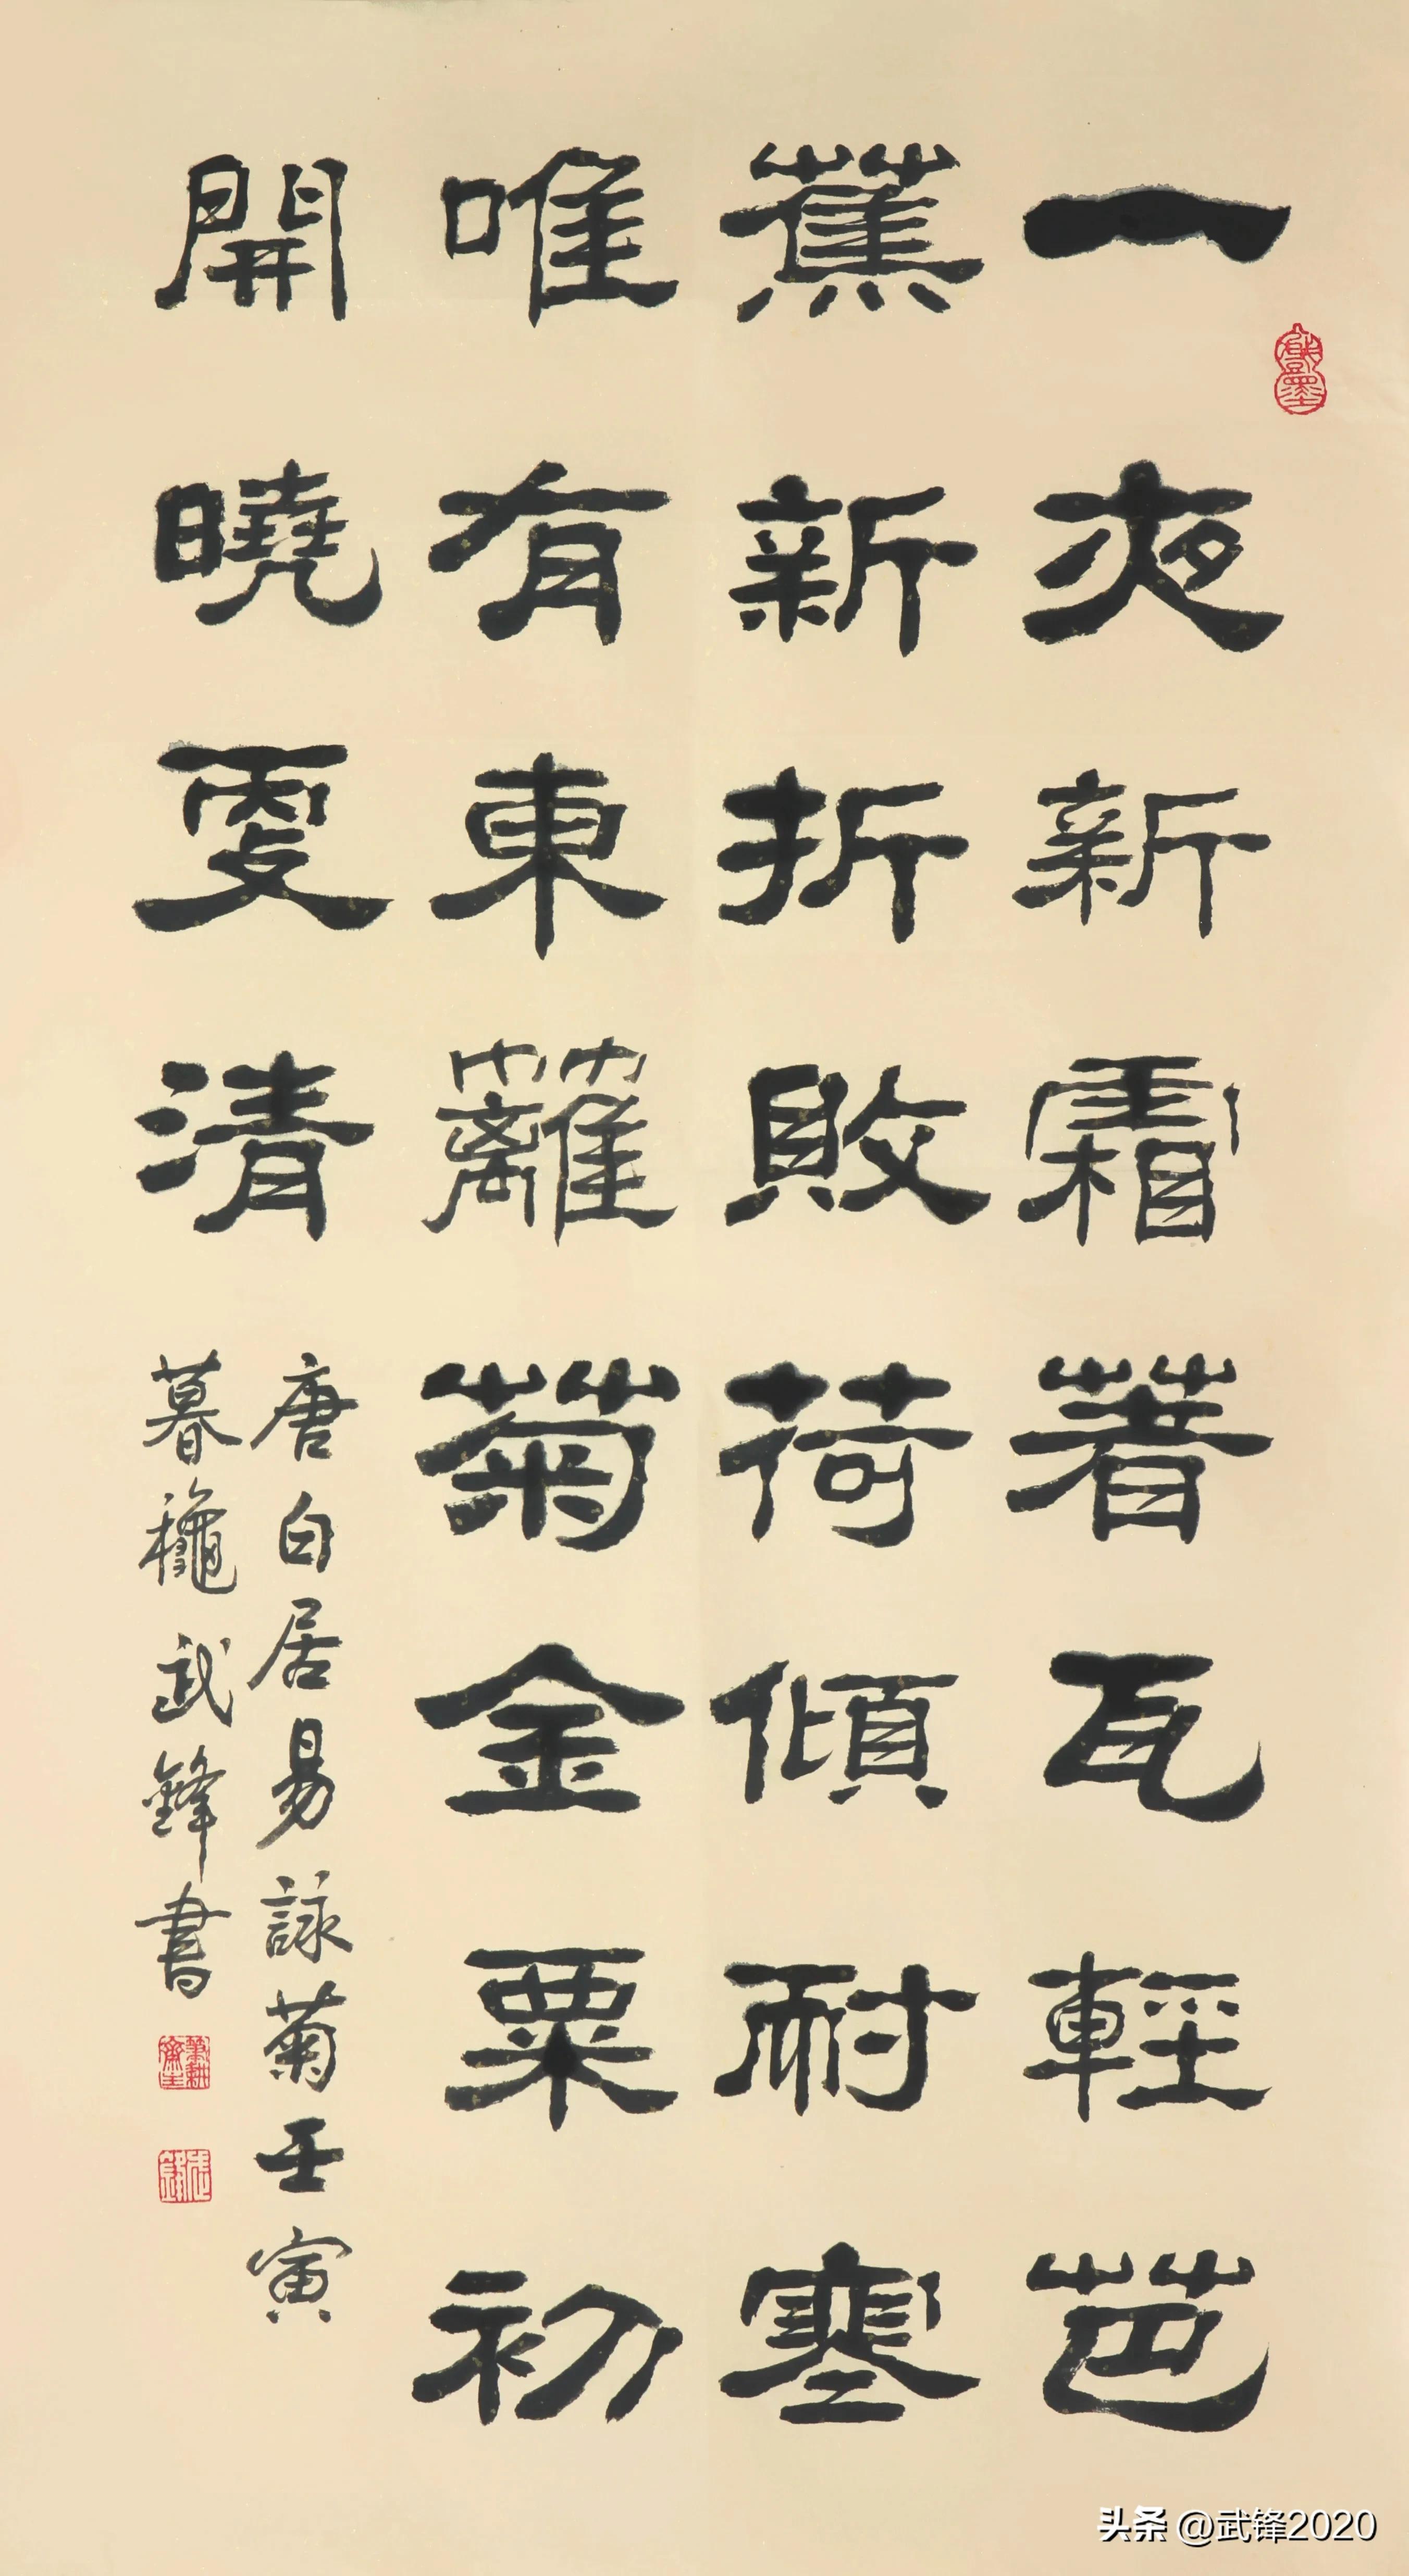 一夜新霜著瓦輕芭
蕉新折敗荷傾耐寒
唯有東籬菊金粟初
開曉更清
唐白居易詠菊壬寅
暮穐武鋒書
头条 @武锋2020